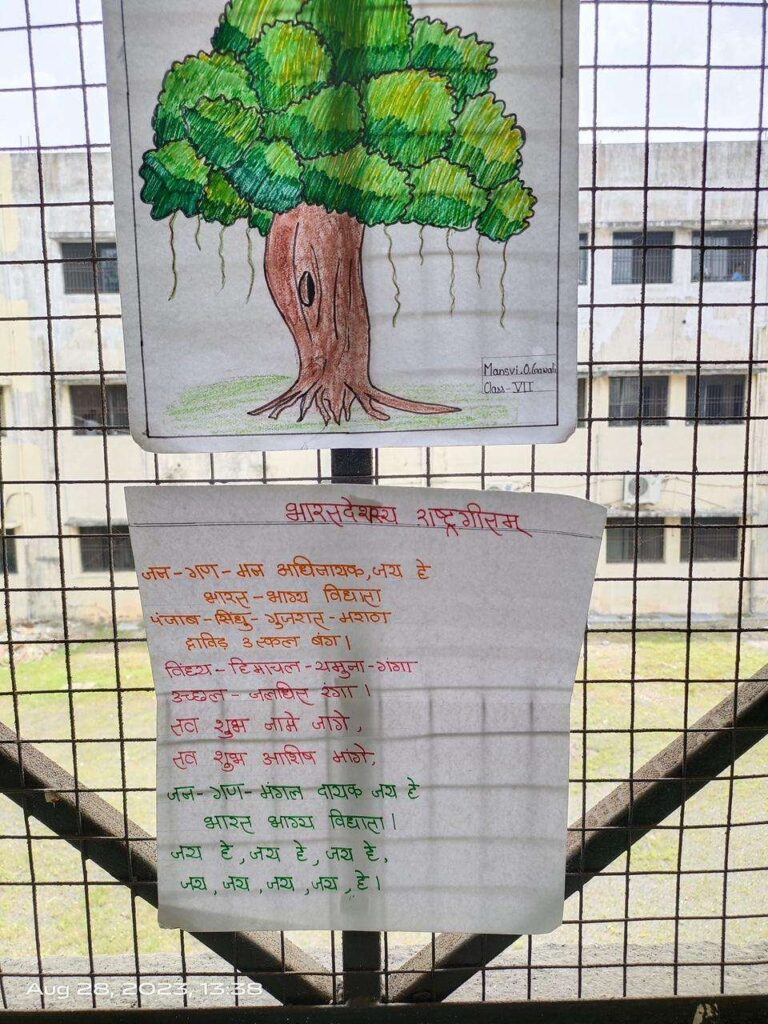 Mansvi.O.Gawali
Class-VII
भारतदेशस्य राष्ट्रगीतम्
जन-गण-मन अधिनायक,जय हे
भारत-भाग्य विधाता
पंजाब-सिंधु-गुजरात-मराठा
द्राविड उत्कल बंग।
विंध्य-हिमाचल-यमुना-गंगा
उच्छल-जलधित रंगा।
तव शुभ नामे जागे,
तव शुभ आशिष मांगे,
जन-गण-मंगल दायक जय हे
भारत भाग्य विधाता।
जय हे,जय हे,जय हे,
जय,जय,जय,जय,हे।
Aug 28, 2023, 13:38